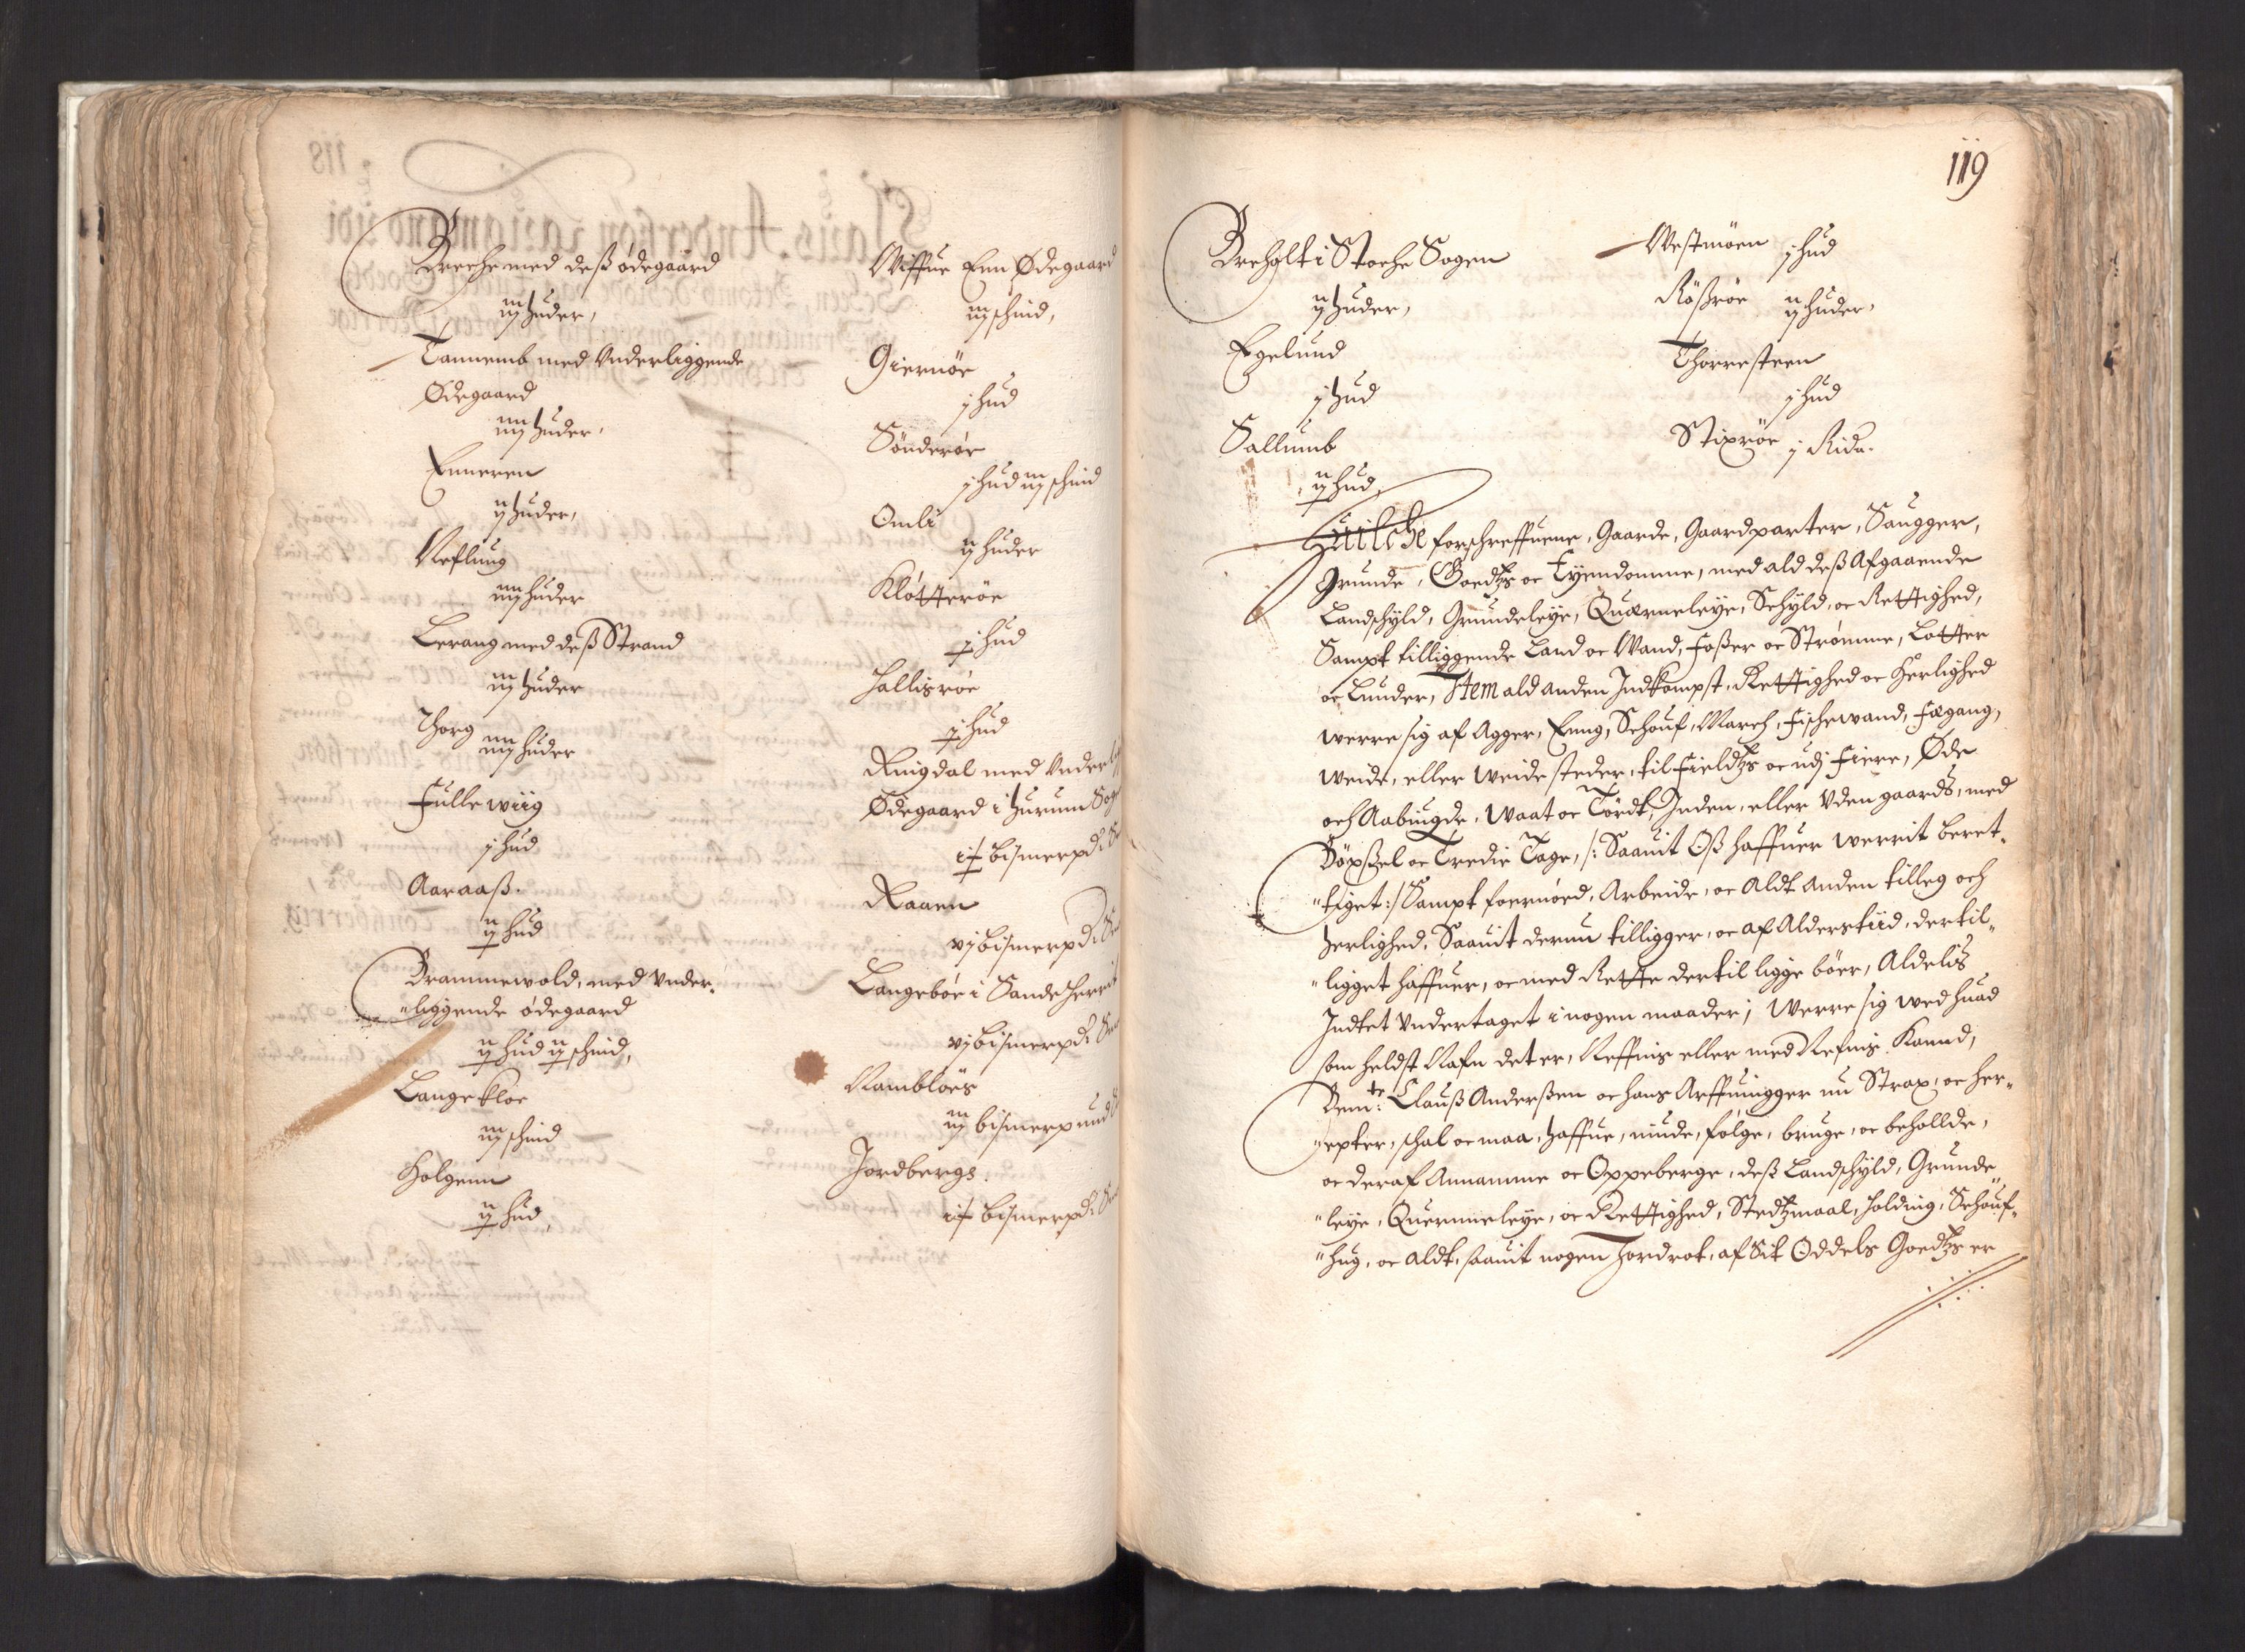 Breche med deß ødegaard
iij huder,
Tannemb med Vnderliggende
Ødegaard
iiij huder,
Enneren
ij huder,
Neflung
iiij huder
Lerang med deß Strand
iij huder
Thorg
iiij huder
Fullewiig
j hud
Aaraaß.
ij hud
Brammewold, med Vnder-
liggende ødegaard
ij hud ij schind,
Langekloe
iij schind
Holgenn
ij hud,
Wiffue Enn Ødegaard
iij schind,
Giernöe
j hud
Sönderöe
j hud iij schind
Omli
ij huder
Kløtterøe
j hud
Hallisröe
j hud
Ringdal med Vnder
Ødegaard i Hurum Sog
i bismerpd:
Raaen
vj bismerpd:
Langebøe i Sande Herrit
vj bismerpd:
Rambløes
iij bismerpund
Jordbergs.
i bismerpd:
119
Breholt i Stoche Sogen
ij huder,
Egelund
j hud
Sallumb
ij hud,
Westmöen j hud
Rößröe ij huder,
Thorresteen
j hud
Stixröe j Rid.
Huilche forschreffuene, Gaarde, Gaardparter, Saugger,
Grunde, Goedtzs oc Eyendomme, med ald deß Afgaaende
Landschyld, Grundeleye, Quærneleye, Schyld, oc Rettighed,
Sampt tilliggende Land oc Wand, Foßer oc Strømme, Lotter
oc Lunder, Item ald anden Indkompst, Rettighed oc Herlighed
werre sig af Agger, Enng, Schouf, March, Fischewand, Fægang,
weide, eller weide steder, til Fieldtzs oc udj Fiere, Øde
och Aabuugde, Waat oc Tördt, Inden, eller Vden gaards, med
Böxßel oc Tredie Tage, /: Saauit Oß haffuer werrit beret-
tiget :/ Sampt foernöed, Arbeide, oc Aldt anden tilleg och
herlighed, Saauit derun tilligger, oc af Alderstiid, dertil-
ligget haffuer, oc med Rette dertil ligge böer, Aldelis
Indtet Vndertaget i nogen maader, Werre sig wed huad
som heldst Nafn det er, Neffnis eller med Nefnis Kannd,
Bem:te Clauß Anderßen oc hans Arffuingger nu Strax, oc her-
epter, schal oc maa, haffue, niude, følge, bruge, oc beholde,
oc deraf Annamme oc Oppeberge, deß Landschyld, Grunde
leye, Quernneleye, oc Rettighed, Stedtzmaal, Holding, Schouf-
hug, oc aldt, saauit nogen Jordrot, af Sit Oddels Goedtzs er